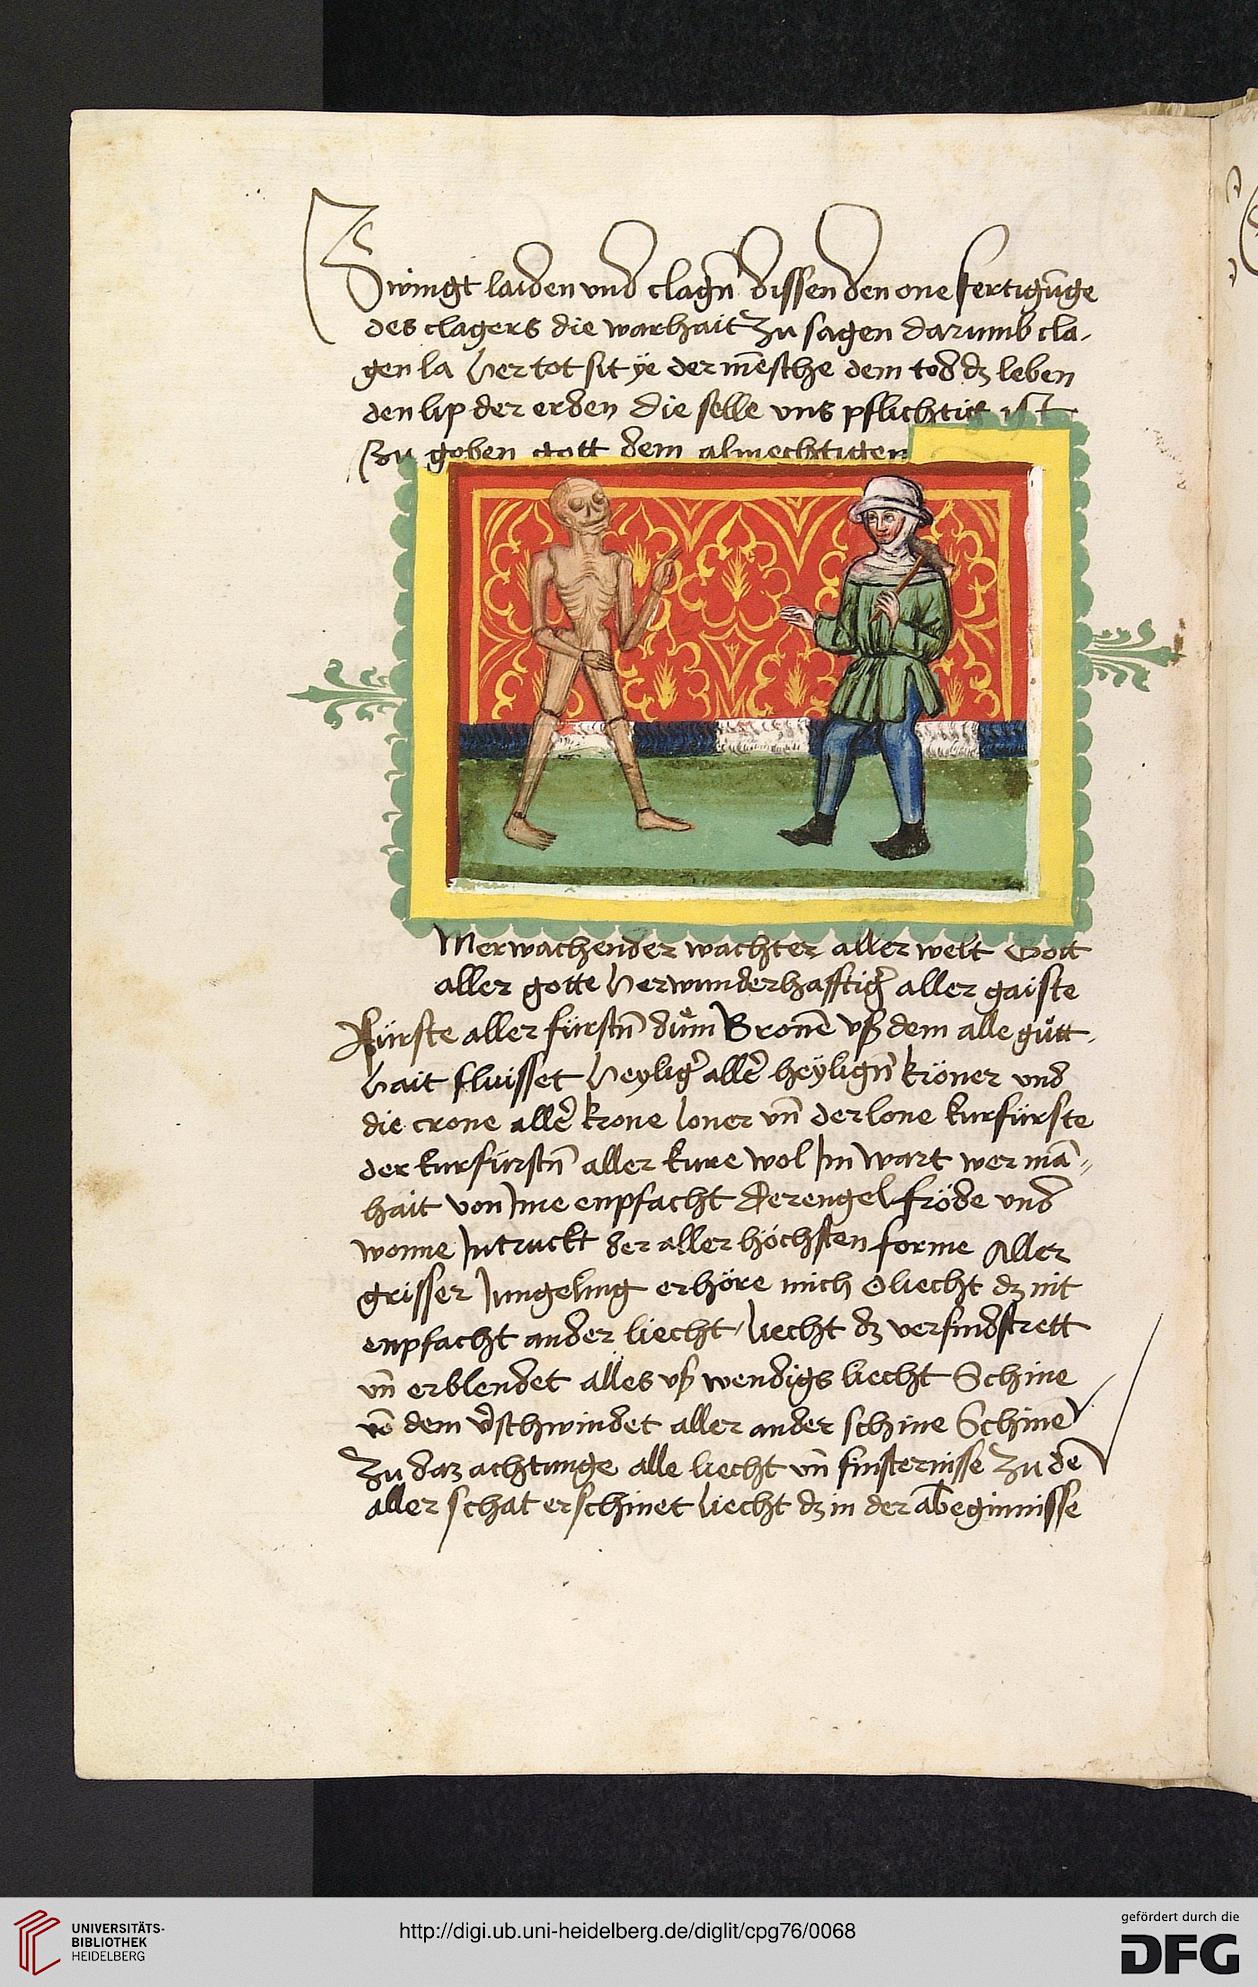 Zwingt laiden und clagn̄ dissen den one fertigūge
des clagers die warhait zu sagen darumb cla-
gen la Her tot sit ÿe der mēsche dem tod dz leben
den lip der erden die selle uns pflichtig ist
Zu geben gott dem almechtigen
Merwachender wachter aller welt Gott
aller gotte Herwunderhafftigʼ aller gaiste
Fürste aller fürstn̄ dům Bronē uß dem alle gůtt
hait flüisset Heyligʼ allʼ heÿlign̄ kröner und
die crone allʼ krone loner un̄ der lone kurfürste
der kurfürstn̄ aller kure wol Im wart wer mā-
hait von Ime enpfacht Der engel fröde und
wonne Intruckt der aller höchsten forme Aller
grisser Iungeling erhöre mich O liecht dz nit
enpfacht ander liecht / liecht dz verfindstrett
un̄ erblendet alles uß wendigs liecht Schine
vō dem v̄schwindet aller ander schine Schine
Zu daz achtunge alle liecht un̄ finsternisse zu dē
aller schat erschinet liecht dz in der abeginnisse
UNIVERSITÄTS-
BIBLIOTHEK
HEIDELBERG
http://digi.ub.uni-heidelberg.de/diglit/cpg76/0068
gefördert durch die
DFG